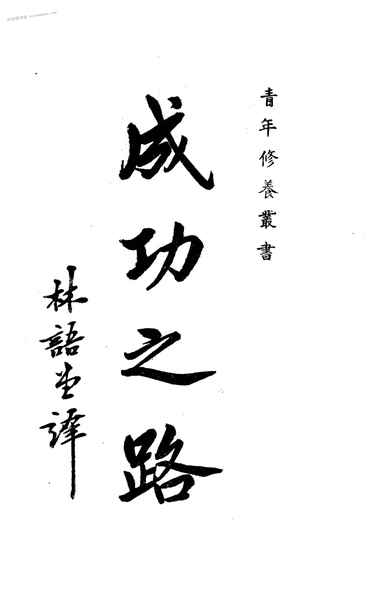 青年修養叢書
成功之路
林語堂譯